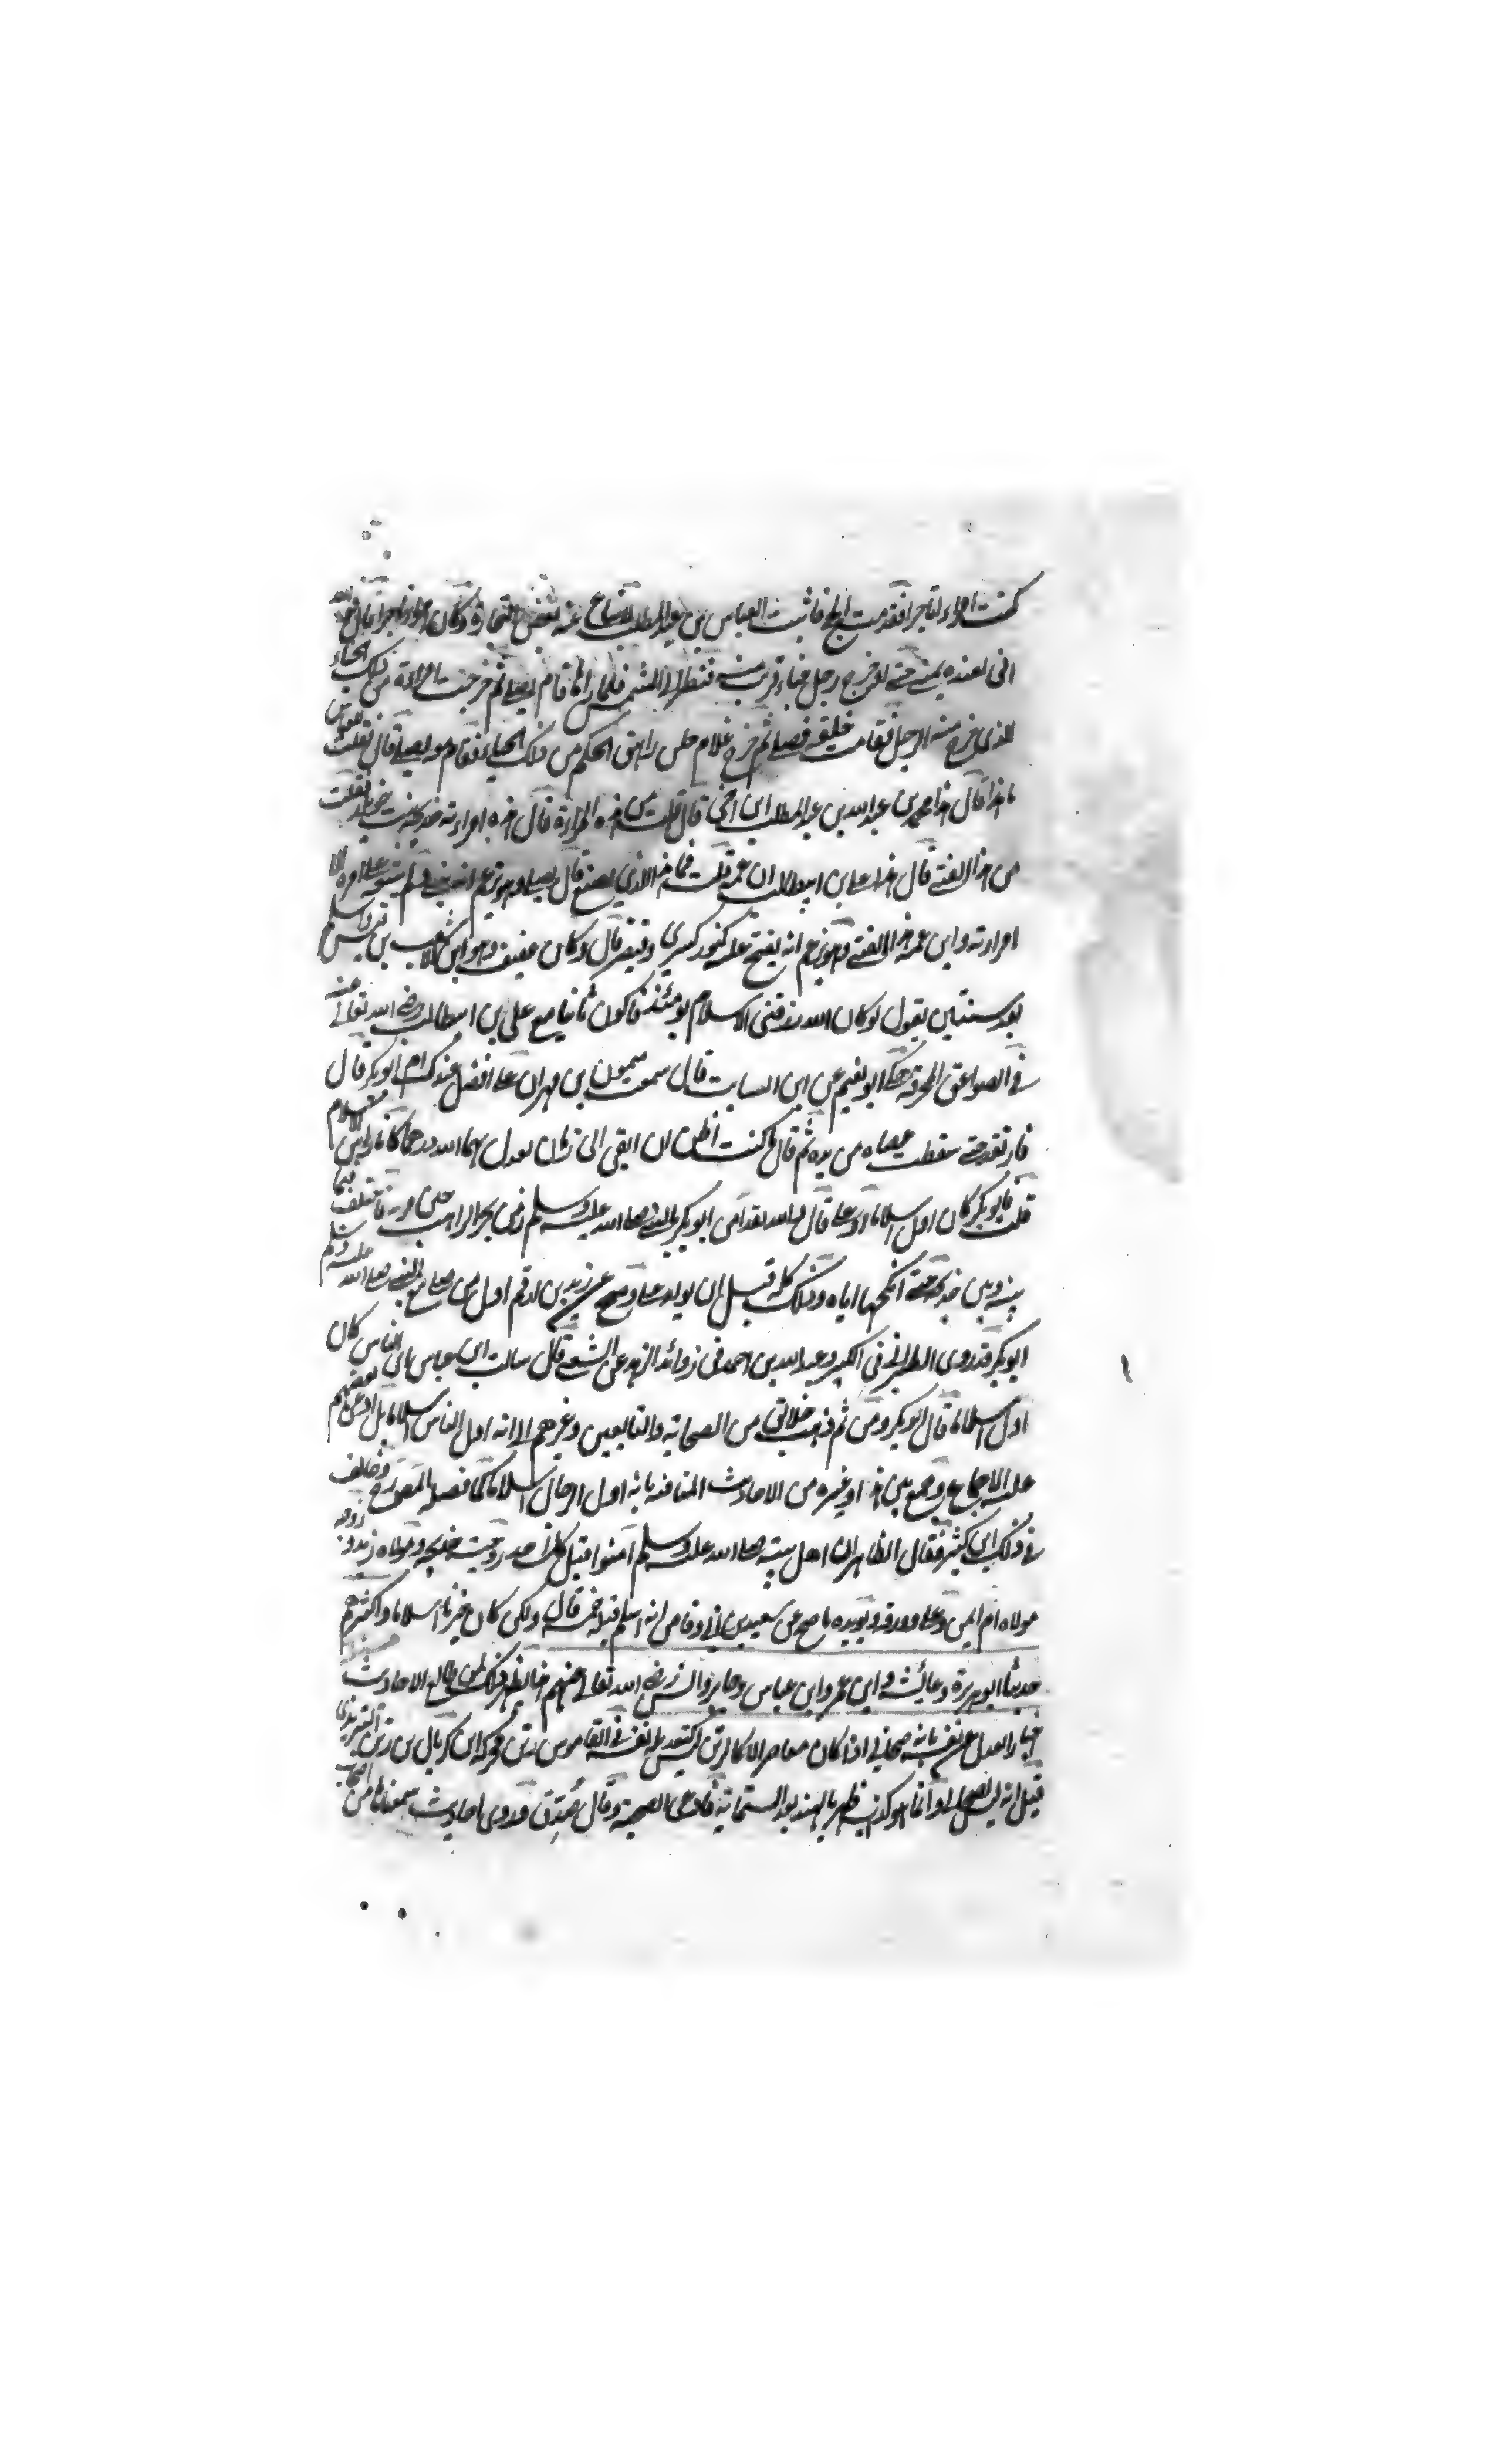 كنت امراء تاجرا فقدمت الحج فاتيت العباس بن عبد المطلب لابتاع منه بعض التجارة وكان امراء تاجرا قال فوالله
اني لعنده بمنى حتى اذ خرج رجل خباء قريب منه فنظر الى الشمس فلما راها قام يصلي ثم خرجت امراءة من ذلك الخباء
الذي خرج منه الرجل فقامت خلفه فصلي ثم خرج غلام حين راهق الحلم من ذلك الخباء فقام معه يصلي قال فقلت للعباس
ما هذا قال هذا محمد بن عبد الله بن عبد المطلب ابن اخي قال قلت من هذه المراءة قال هذه امراءته خديجة بنت خويلد فقلت
من هذا الفتى قال هذا علي بن ابيطالب ابن عمه قلت فما هذا الذي يصنع قال يصلي وهو يزعم انه نبي ولم يتبعه على امره الا
امراءته وابن عمه هذا الفتى وهو يزعم انه يفتح عليه كنوز كسرى وقيصر قال وكان عفيف وهو ابن الاشعث بن قيس واسلم
بعد سنتين يقول لو كان الله رزقني الاسلام يومئذ فاكون ثانيا مع علي بن ابيطالب رضي الله تعالى عنه
في الصواعق المحرقة حكى ابو نعيم عن ابن السايب قال سمعت ميمون بن مهران علي افضل عندك ام ابو بكر قال
فارتعد حتى سقطت عصاه من يده ثم قال ما كنت اظن ان ابقى الى زمان يعدل بهما لله درهما كانا راس الاسلام
قلت فابو بكر كان اول اسلاما او علي قال والله لقد آمن ابو بكر بالنبي صلى الله عليه وسلم زمن بحيرا الراهب حين مر به فاختلف فيما
بينه وبين خديجة حتى انكحها اياه وذلك كله قبل ان يولد علي وصح عن زيد بن ارقم اول من صلى مع النبي صلى الله عليه وسلم
ابو بكر فقد روى الطبراني في الكبير وعبد الله بن احمد في زوائد الزهد عن الشعبي قال سالت ابن عباس اي الناس كان
اول اسلاما قال ابو بكر ومن ثم ذهب خلائق من الصحابة والتابعين وغيرهم الى انه اول الناس اسلاما بل ادعى بعضهم
عليه الاجماع وجمع بين هذا وغيره من الاحاديث المنافية بانه اول الرجال اسلاما كما فصله وخالف
في ذلك ابن كثير فقال الظاهر ان اهل بيته صلى الله عليه وسلم آمنوا قبل كل احد زوجته خديجة ومولاه زيد وزوجه
مولاه ام ايمن وعلي وورقه ويؤيده ما صح عن سعد بن ابي وقاص انه اسلم قبله خمسة قال ولكن كان خيرنا اسلاما واكثرهم
حديثا ابو هريرة وعائشة وابن عمر وابن عباس وجابر وانس رضي الله تعالى عنهم لمن طالع الاحاديث
عن نفسه بانه صحابي اذا كان معاصرا لا كالرتن ليس في القاموس رتن محركة ابن كربال بن رتن البترندي
قيل انه ليس بصحابي وانما هو كذاب ظهر بالهند بعد الستمائة فادعى الصحبة وقال صُدّق وروى احاديث سمعناها من اصحاب